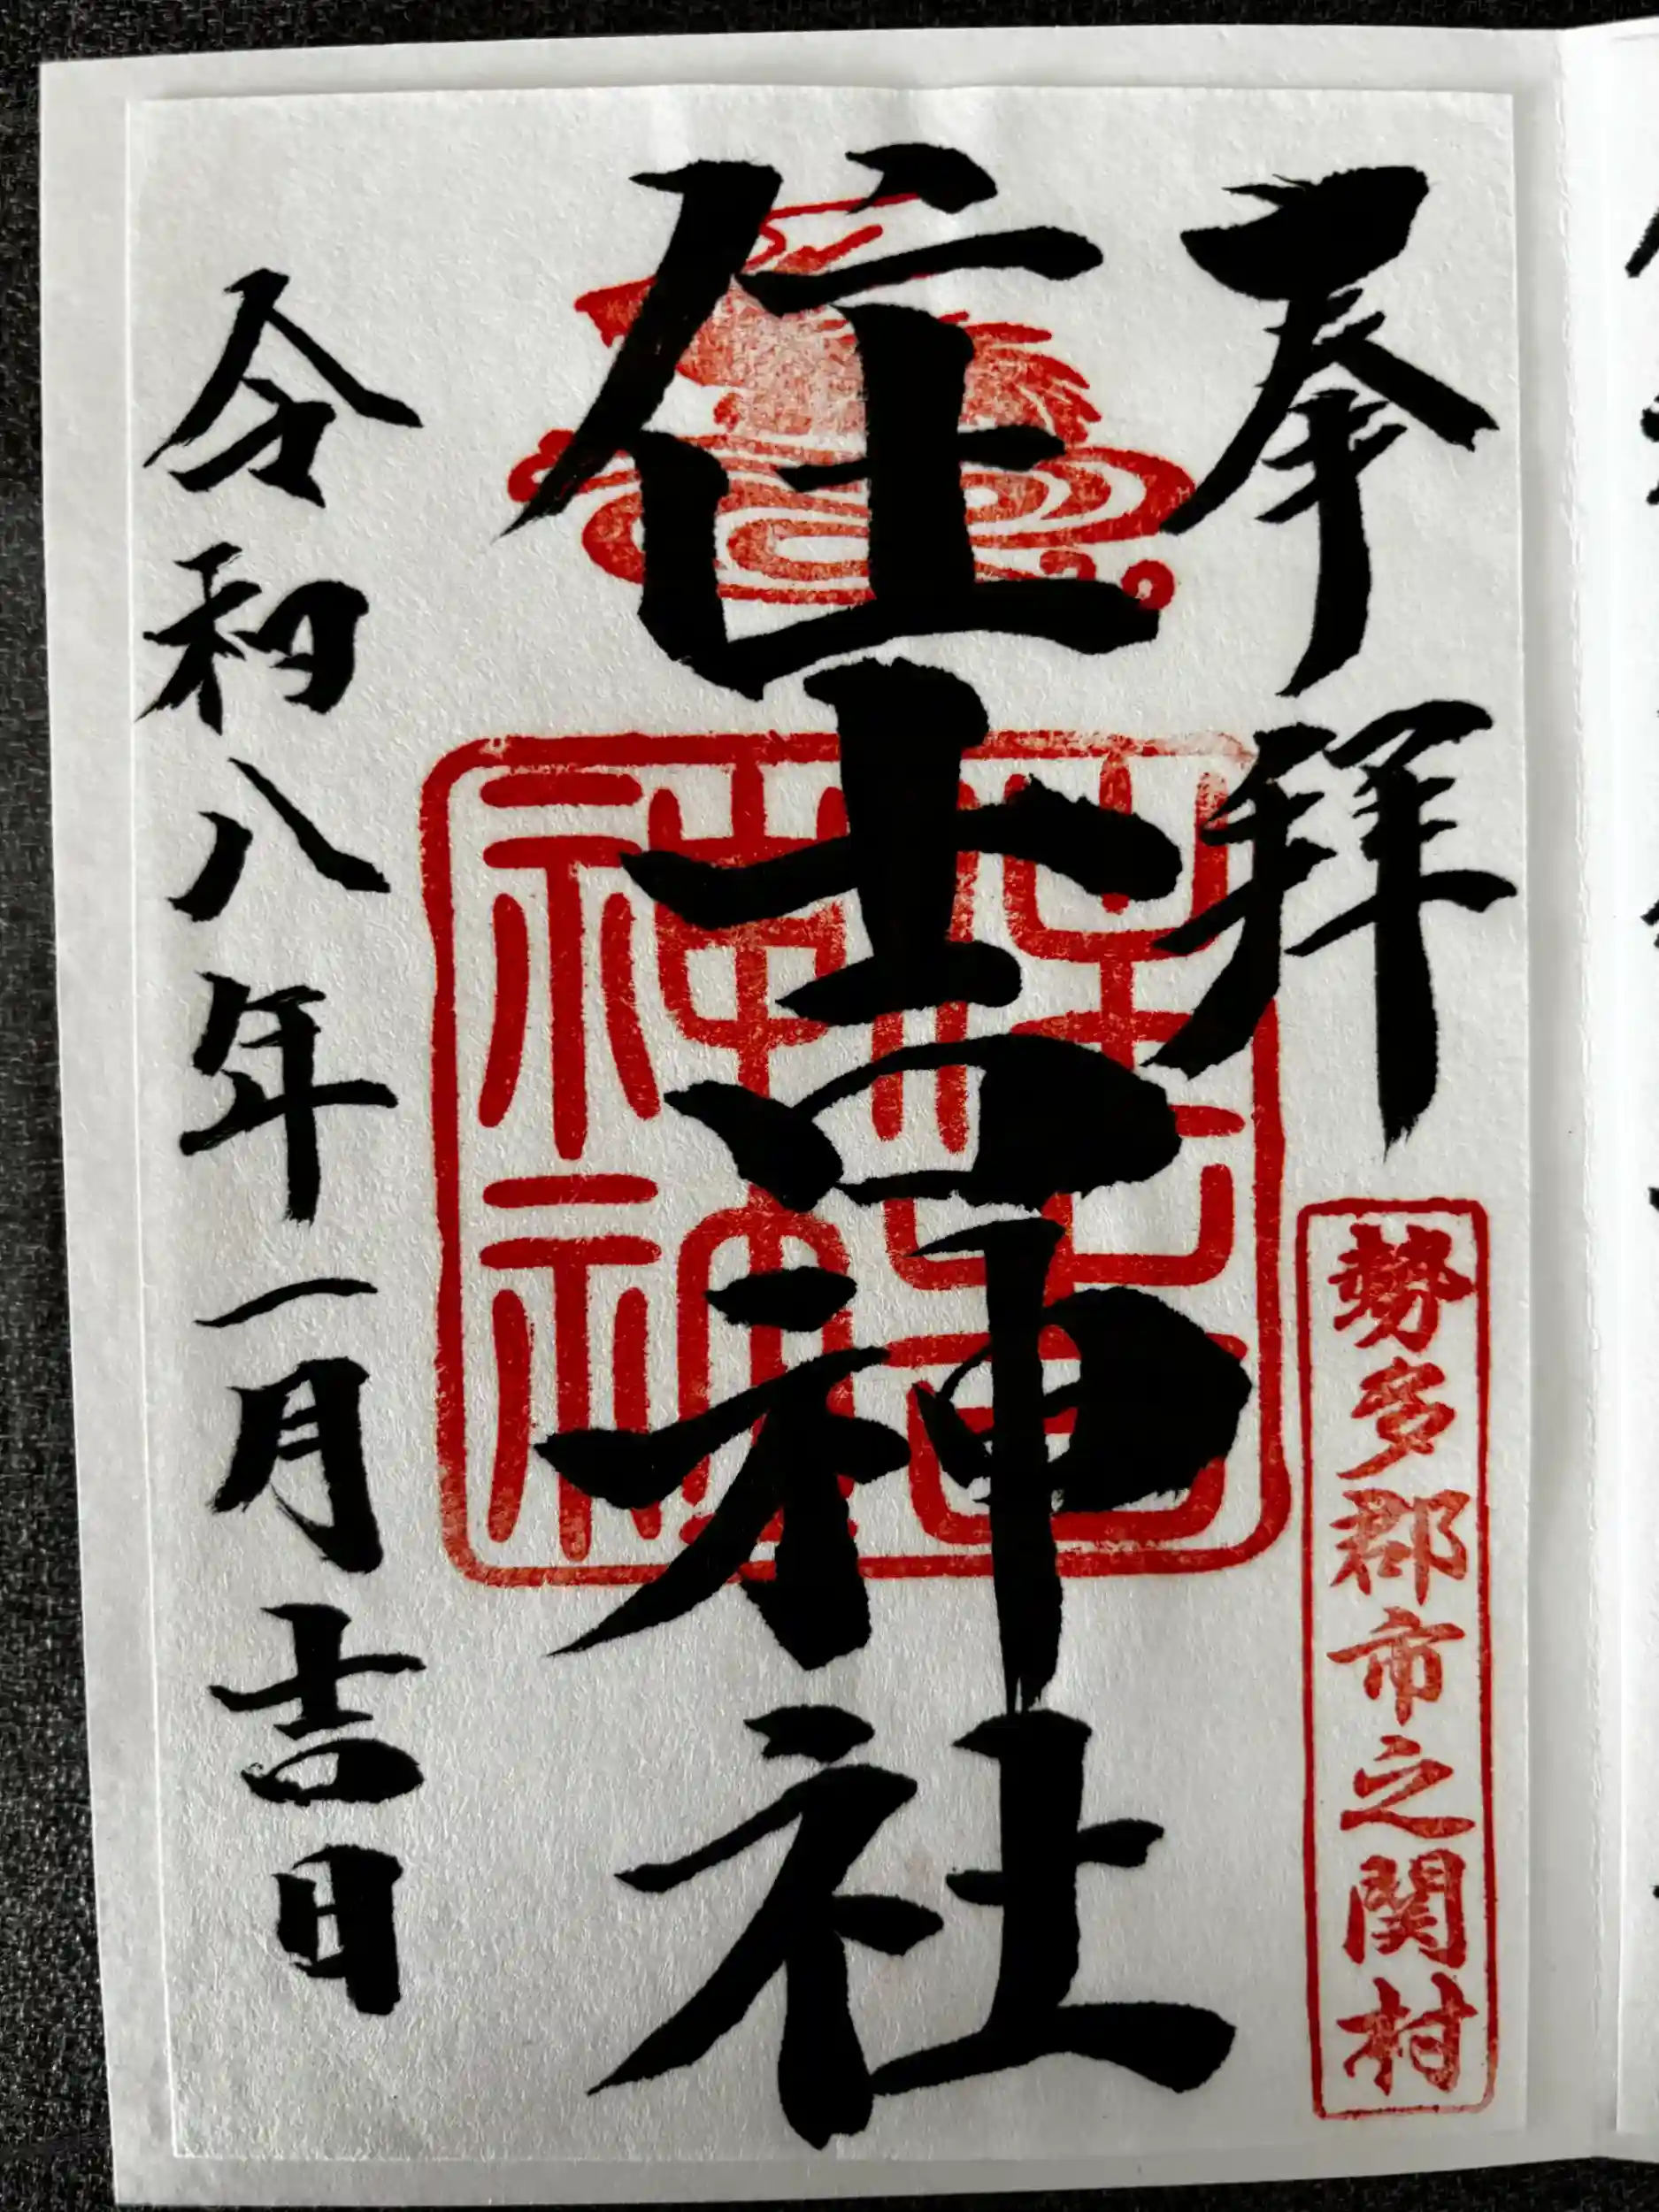 奉拝
勢多郡市之関村
住吉神社
住吉神社
令和八年一月吉日